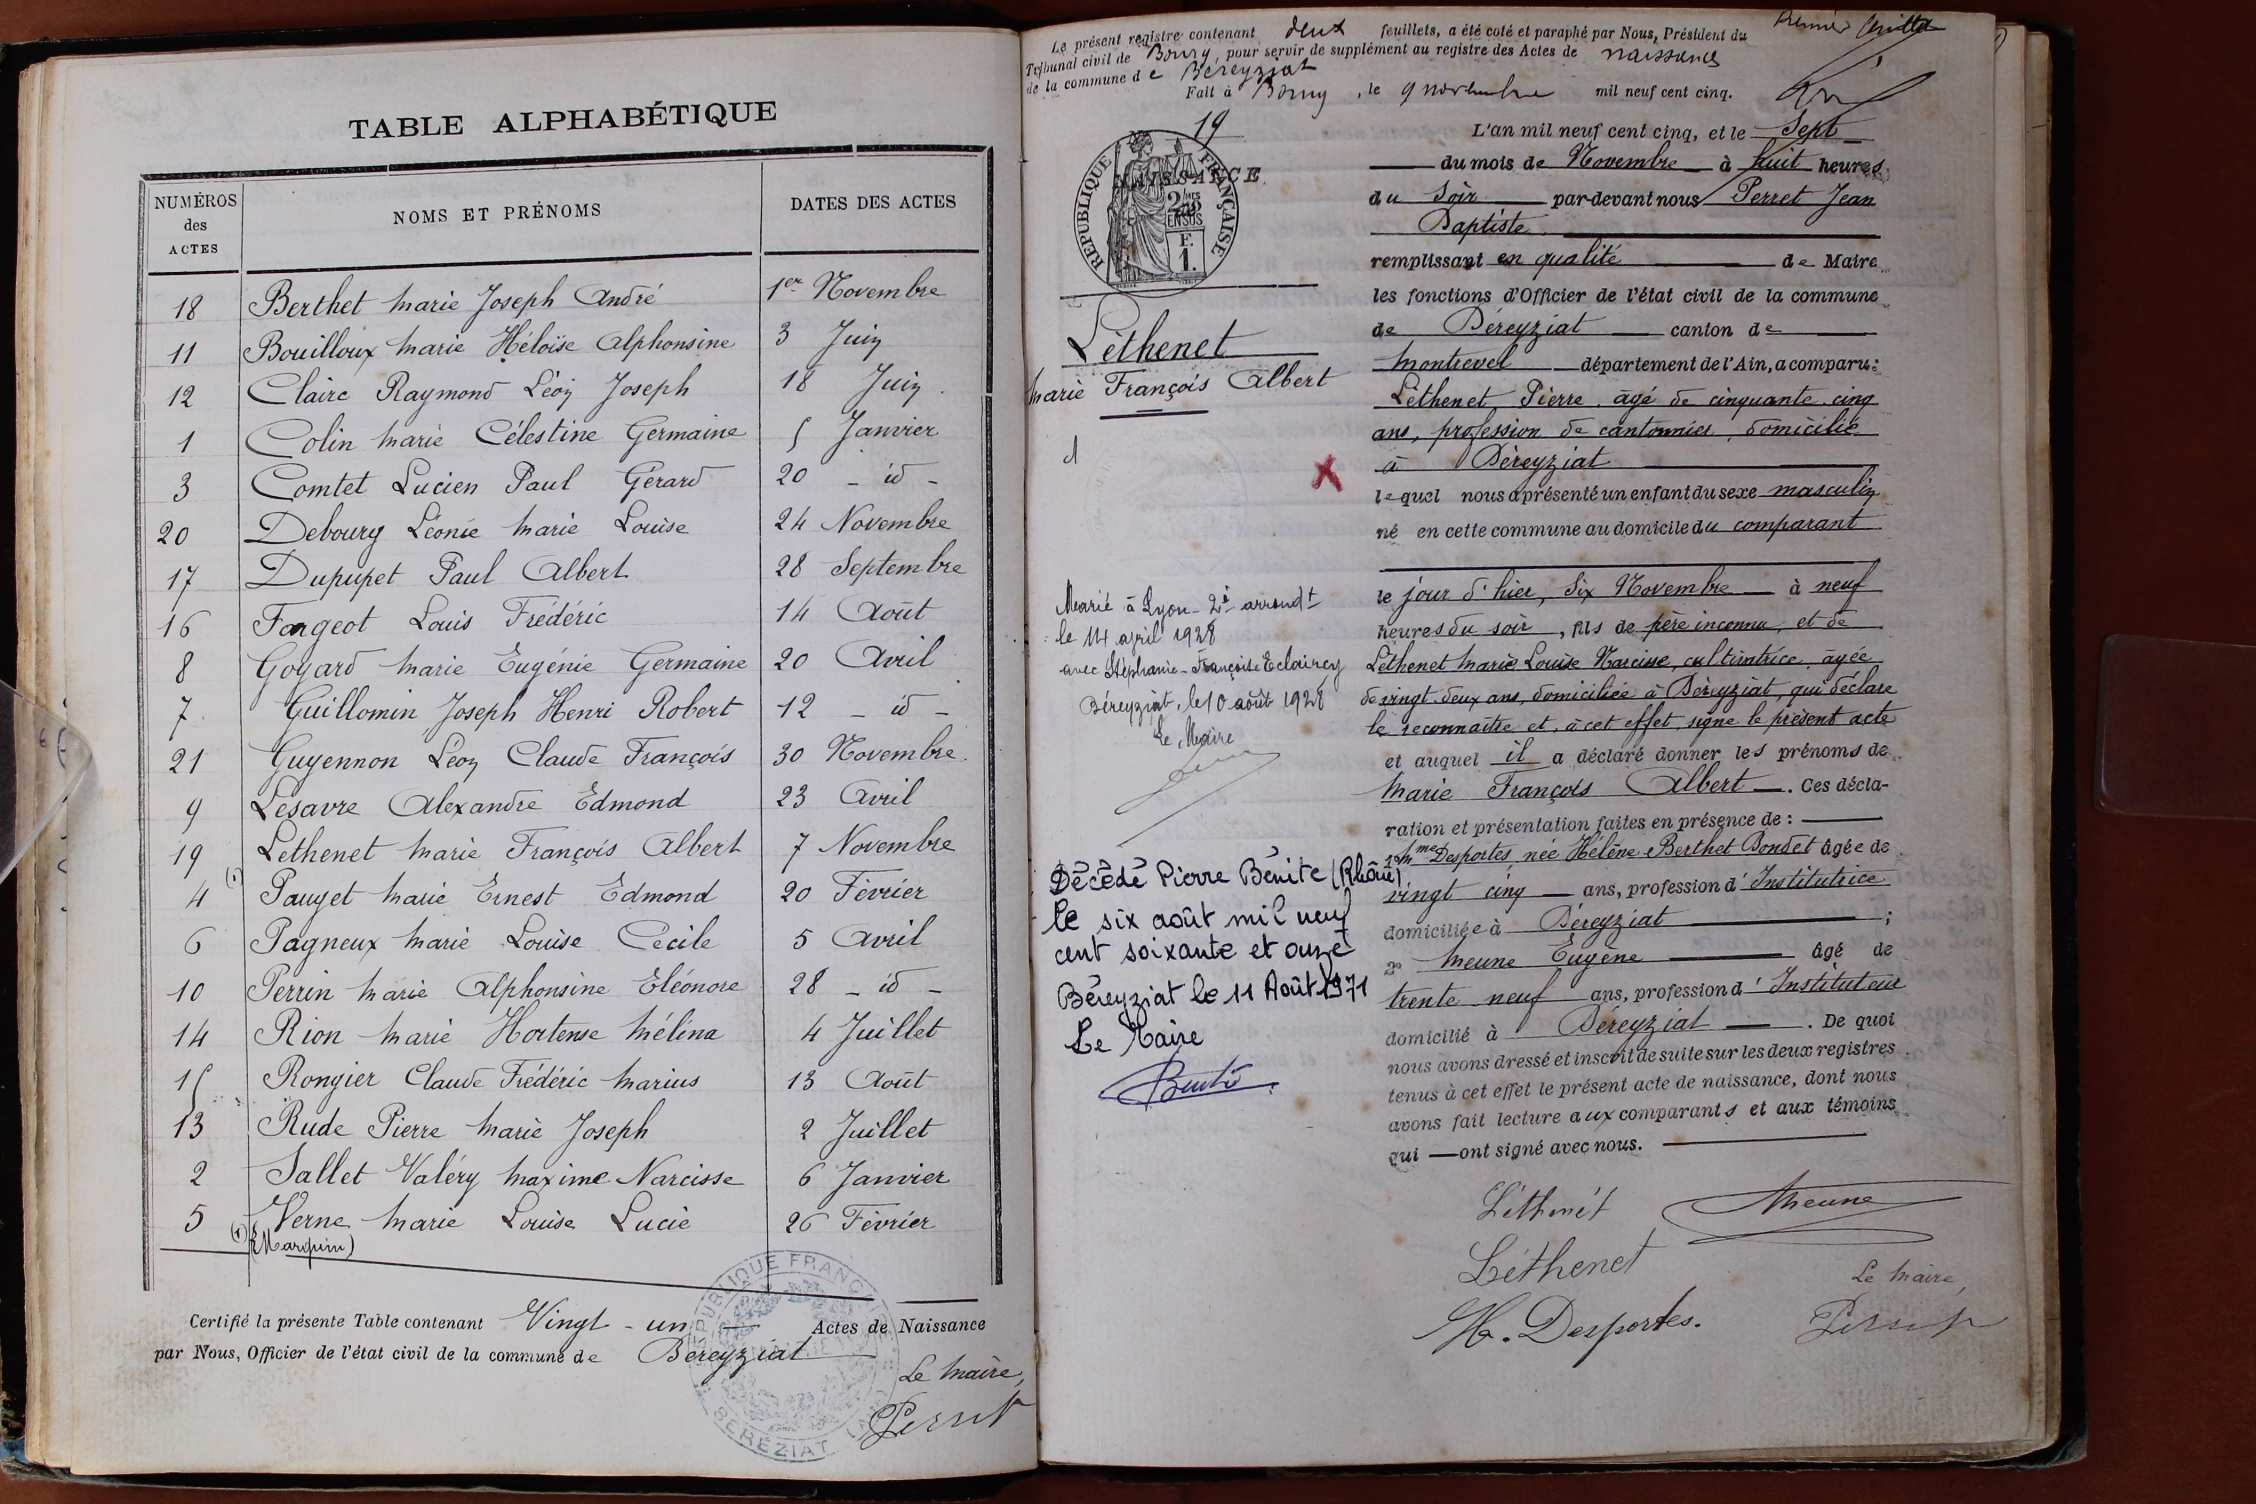 TABLE ALPHABÉTIQUE
NUMÉROS des ACTES
NOMS ET PRÉNOMS
DATES DES ACTES
18 Berthet Marie Joseph André 1er Novembre
11 Bouilloux Marie Héloïse Alphonsine 3 Juin
12 Claire Raymond Léon Joseph 18 Juin
1 Colin Marie Célestine Germaine 5 Janvier
3 Comtet Lucien Paul Gérard 20 - id -
20 Debourg Léonie Marie Louise 24 Novembre
17 Dupupet Paul Albert 28 Septembre
16 Forgeot Louis Frédéric 14 Août
8 Goyard Marie Eugénie Germaine 20 Avril
7 Guillomin Joseph Henri Robert 12 - id -
21 Guyennon Léon Claude François 30 Novembre
9 Lesavre Alexandre Edmond 23 Avril
19 Léthenet Marie François Albert 7 Novembre
4 (1) Pauget Marie Ernest Edmond 20 Février
6 Pagneux Marie Louise Cécile 5 Avril
10 Perrin Marie Alphonsine Eléonore 28 - id -
14 Rion Marie Hortense Mélina 4 Juillet
15 Rongier Claude Frédéric Marius 13 Août
13 Rude Pierre Marie Joseph 2 Juillet
2 Sallet Valéry Maxime Narcisse 6 Janvier
5 Verne Marie Louise Lucie 26 Février
(1) (Marquin)
Certifié la présente Table contenant Vingt-un Actes de Naissance
par Nous, Officier de l'état civil de la commune de Béreyziat
Le Maire,
Perret
RÉPUBLIQUE FRANÇAISE
BÉRÉZIAT (AIN)
Le présent registre contenant deux feuillets, a été coté et paraphé par Nous, Président du
Tribunal civil de Bourg, pour servir de supplément au registre des Actes de naissances
de la commune de Béreyziat
Fait à Bourg, le 9 novembre mil neuf cent cinq.
Premier feuillet
19
NAISSANCE
RÉPUBLIQUE FRANÇAISE
Léthenet
Marie François Albert
1
Marié à Lyon - 2e arrondt
le 14 april 1928
avec Stéphanie-Françoise Eclaircy
Béreyziat, le 10 août 1928
Le Maire
Décédé Pierre Bénite (Rhône)
le six août mil neuf
cent soixante et onze
Béreyziat le 11 Août 1971
Le Maire
L'an mil neuf cent cinq, et le Sept
du mois de Novembre à huit heures
du Soir par-devant nous Perret Jean
Baptiste
remplissant en qualité de Maire
les fonctions d'Officier de l'état civil de la commune
de Béreyziat canton de
Montrevel département de l'Ain, a comparu:
Léthenet Pierre, âgé de cinquante cinq
ans, profession de cantonnier, domicilié
à Béreyziat
lequel nous a présenté un enfant du sexe masculin
né en cette commune au domicile du comparant
le jour d'hier, Six Novembre à neuf
heures du soir, fils de père inconnu, et de
Léthenet Marie Louise Narcisse, cultivatrice, âgée
de vingt-deux ans, domiciliée à Béreyziat, qui déclare
le reconnaître et, à cet effet, signe le présent acte
et auquel il a déclaré donner les prénoms de
Marie François Albert. Ces décla-
ration et présentation faites en présence de :
1° Mme Desportes née Hélène Berthet Bondet âgée de
vingt cinq ans, profession d'Institutrice
domiciliée à Béreyziat ;
2° Meune Eugène âgé de
trente neuf ans, profession d'Instituteur
domicilié à Béreyziat. De quoi
nous avons dressé et inscrit de suite sur les deux registres
tenus à cet effet le présent acte de naissance, dont nous
avons fait lecture aux comparants et aux témoins
qui ont signé avec nous.
Léthenet
Meune
Léthenet
Le Maire,
H. Desportes.
Perret